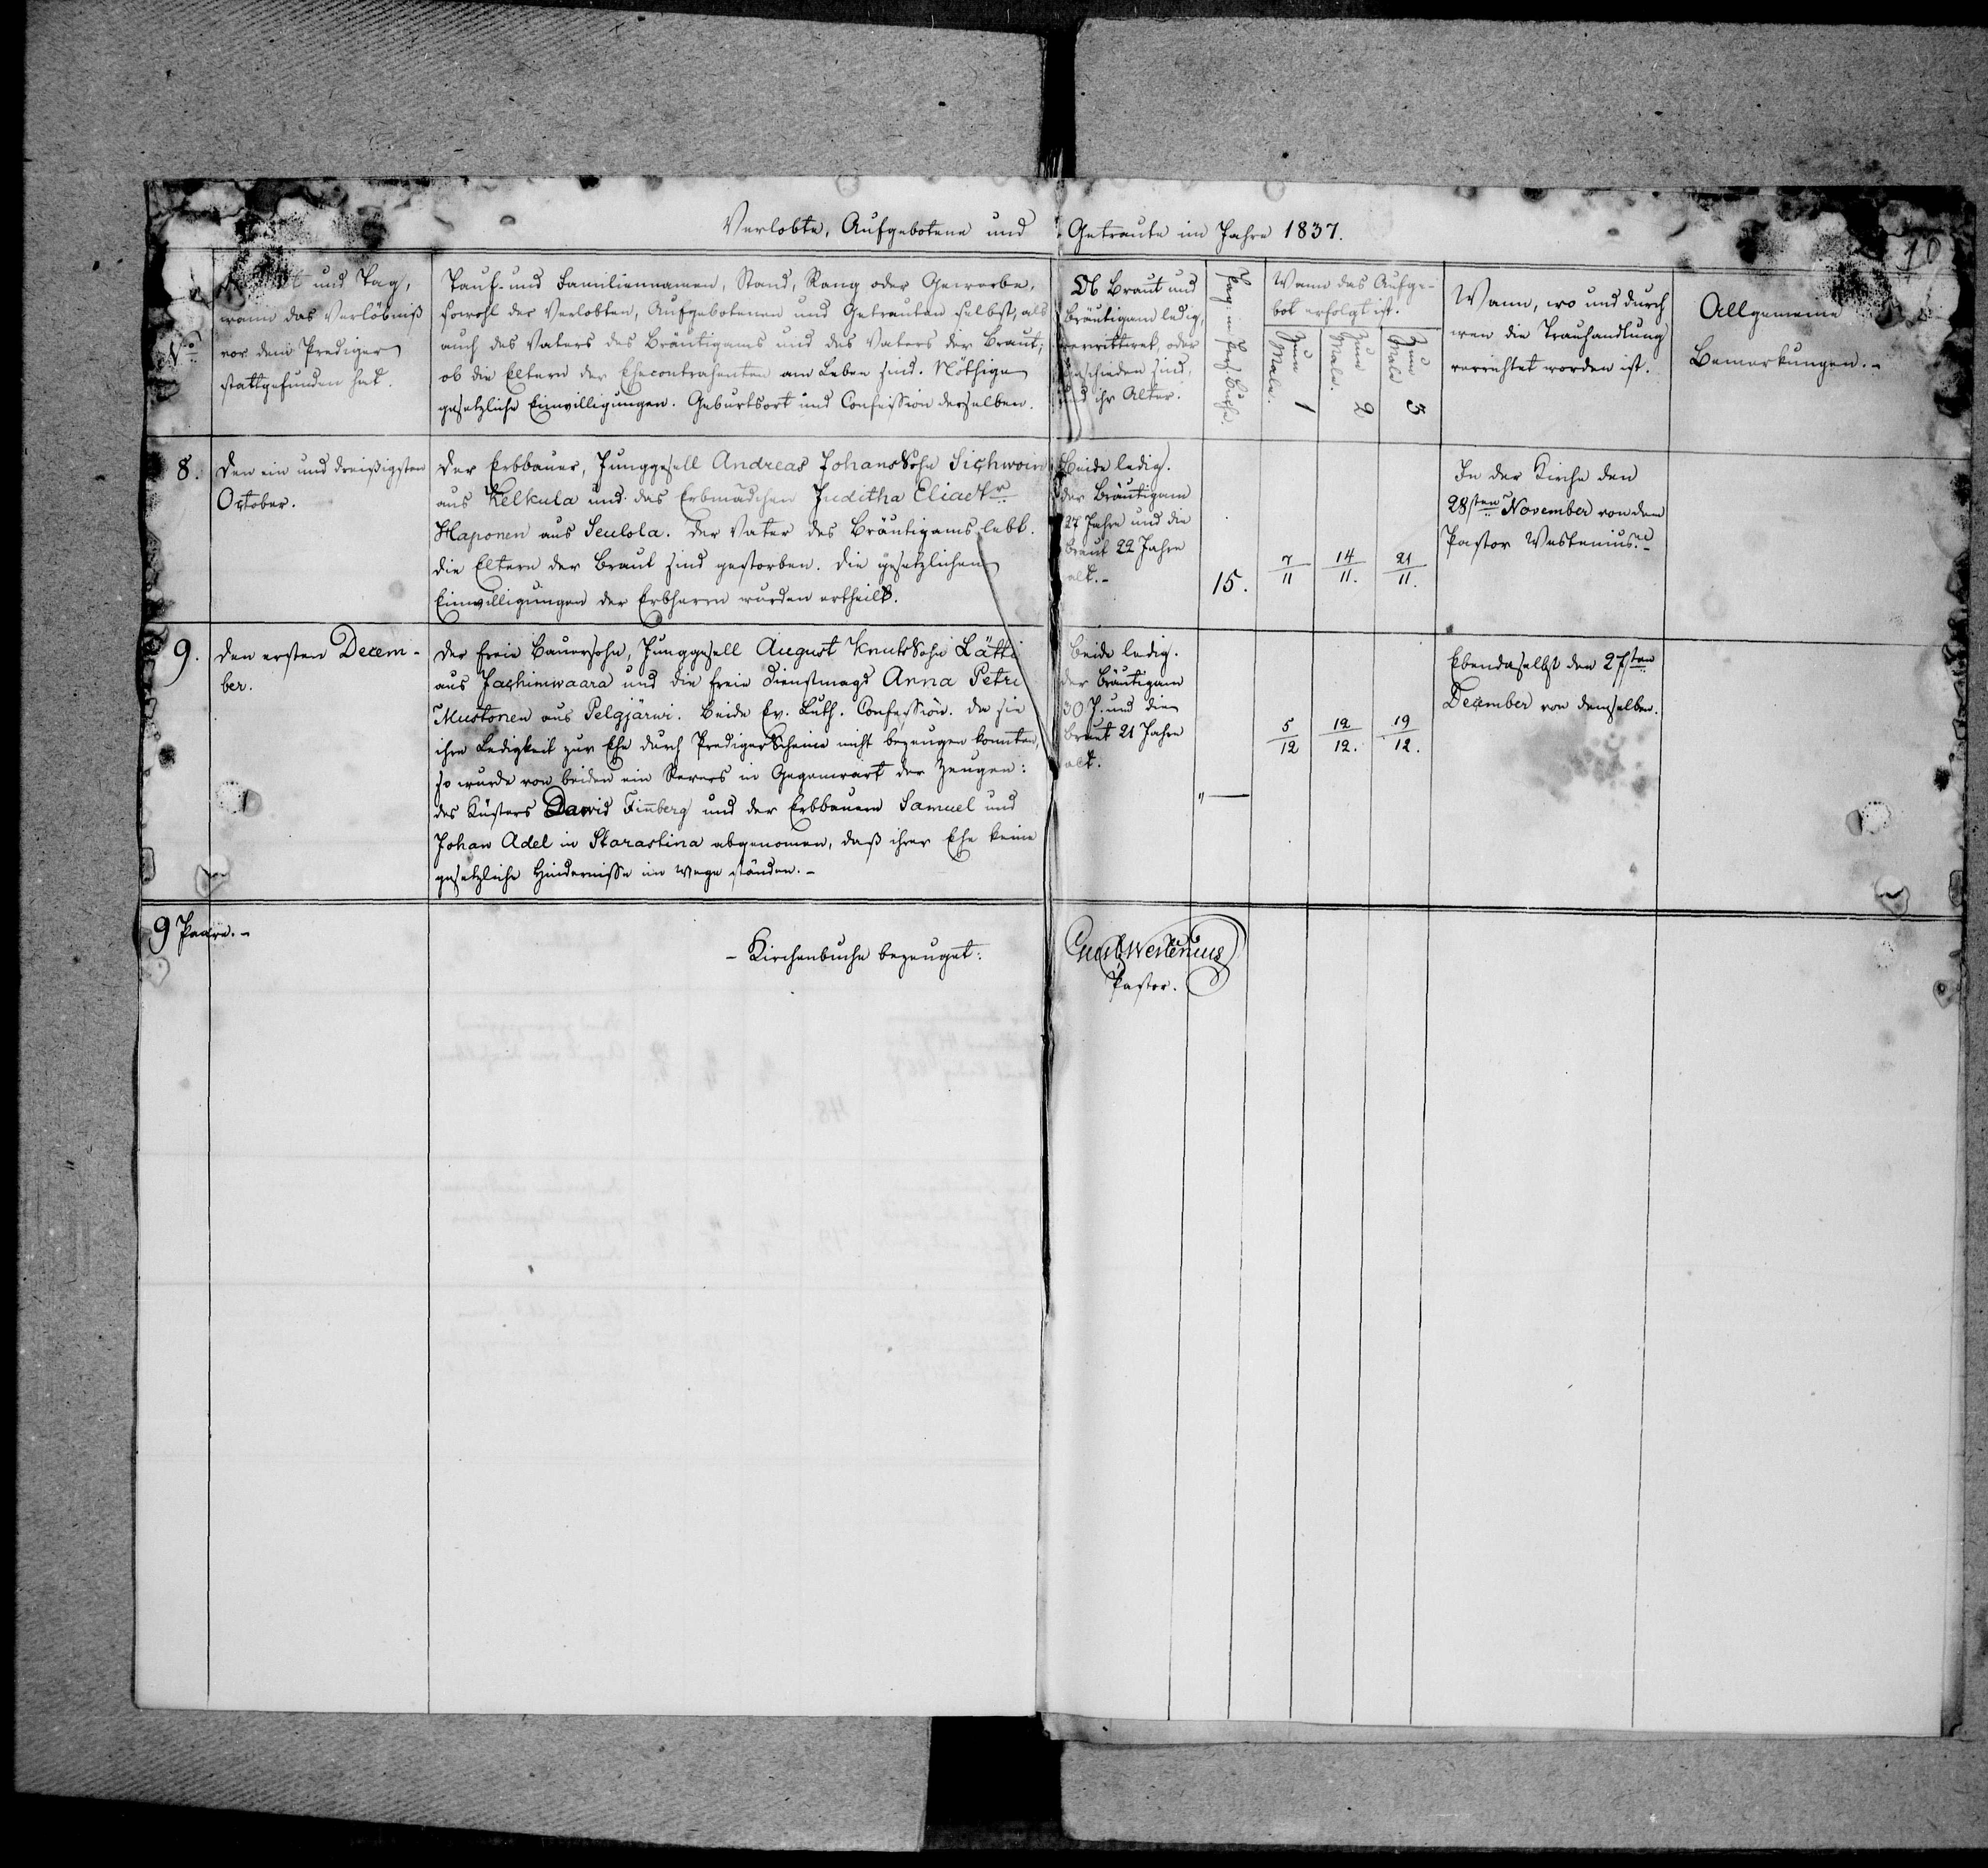 Verlobte, Aufgebotene und Getraute im Jahre 1837.
10
No
und Tag,
wann das Verlöbniß
vor dem Prediger
stattgefunden hat.
Tauf- und Familiennamen, Stand, Rang oder Gewerbe,
sowohl der Verlobten, Aufgebotenen und Getrauten selbst, als
auch des Vaters des Bräutigams und des Vaters der Braut;
ob die Eltern der Ehecontrahenten am Leben sind. Nöthige
gesetzliche Einwilligungen. Geburtsort und Confession derselben.
Ob Braut und
Bräutigam ledig,
verwittwet, oder
geschieden sind,
und ihr Alter.
Pag. im Pers. Buche.
Wann das Aufge-
bot erfolgt ist.
Zum 1 Male.
Zum 2 Male.
Zum 3 Male
Wann, wo und durch
wen die Trauhandlung
verrichtet worden ist.
Allgemeine
Bemerkungen.-
8.
Den ein und dreißigsten
October.
Der Erbbauer, Junggesell Andreas Johans Sohn Sichwoin
aus Kelkula und das Erbmädchen Juditha Elias Tr
Haponen aus Seulola. Der Vater des Bräutigams lebt.
Die Eltern der Braut sind gestorben. Die gesetzlichen
Einwilligungen der Erbherrn wurden ertheilt.
Beide ledig.
der Bräutigam
27 Jahre und die
Braut 22 Jahre
alt.-
15.
7/11
14/11.
21/11.
In der Kirche den
28sten November von dem
Pastor Westenius.
9.
Den ersten Decem-
ber.
Der freie Bauersohn, Junggesell August Knuts Sohn Lätti
aus Jachimwaara und die freie Dienstmagd Anna Petri
Mustonen aus Pelgjärwi. Beide Ev. Luth. Confession. Da sie
ihre Ledigkeit zur Ehe durch Prediger Scheine nicht bezeugen konnten,
so wurde von beiden ein Revers in Gegenwart der Zeugen:
des Küsters David Finnberg und der Erbbauern Samuel und
Johan Adel in Starastina abgenomen, daß ihrer Ehe keine
gesetzliche Hindernisse im Wege ständen.-
Beide ledig.
der Bräutigam
30 J. und die
Braut 21 Jahre
alt.
"—
5/12
12/12.
19/12.
Ebendaselbst den 27sten
December von demselben.
9 Paare.-
- Kirchenbuche bezeuget:
Westenius
Pastor.